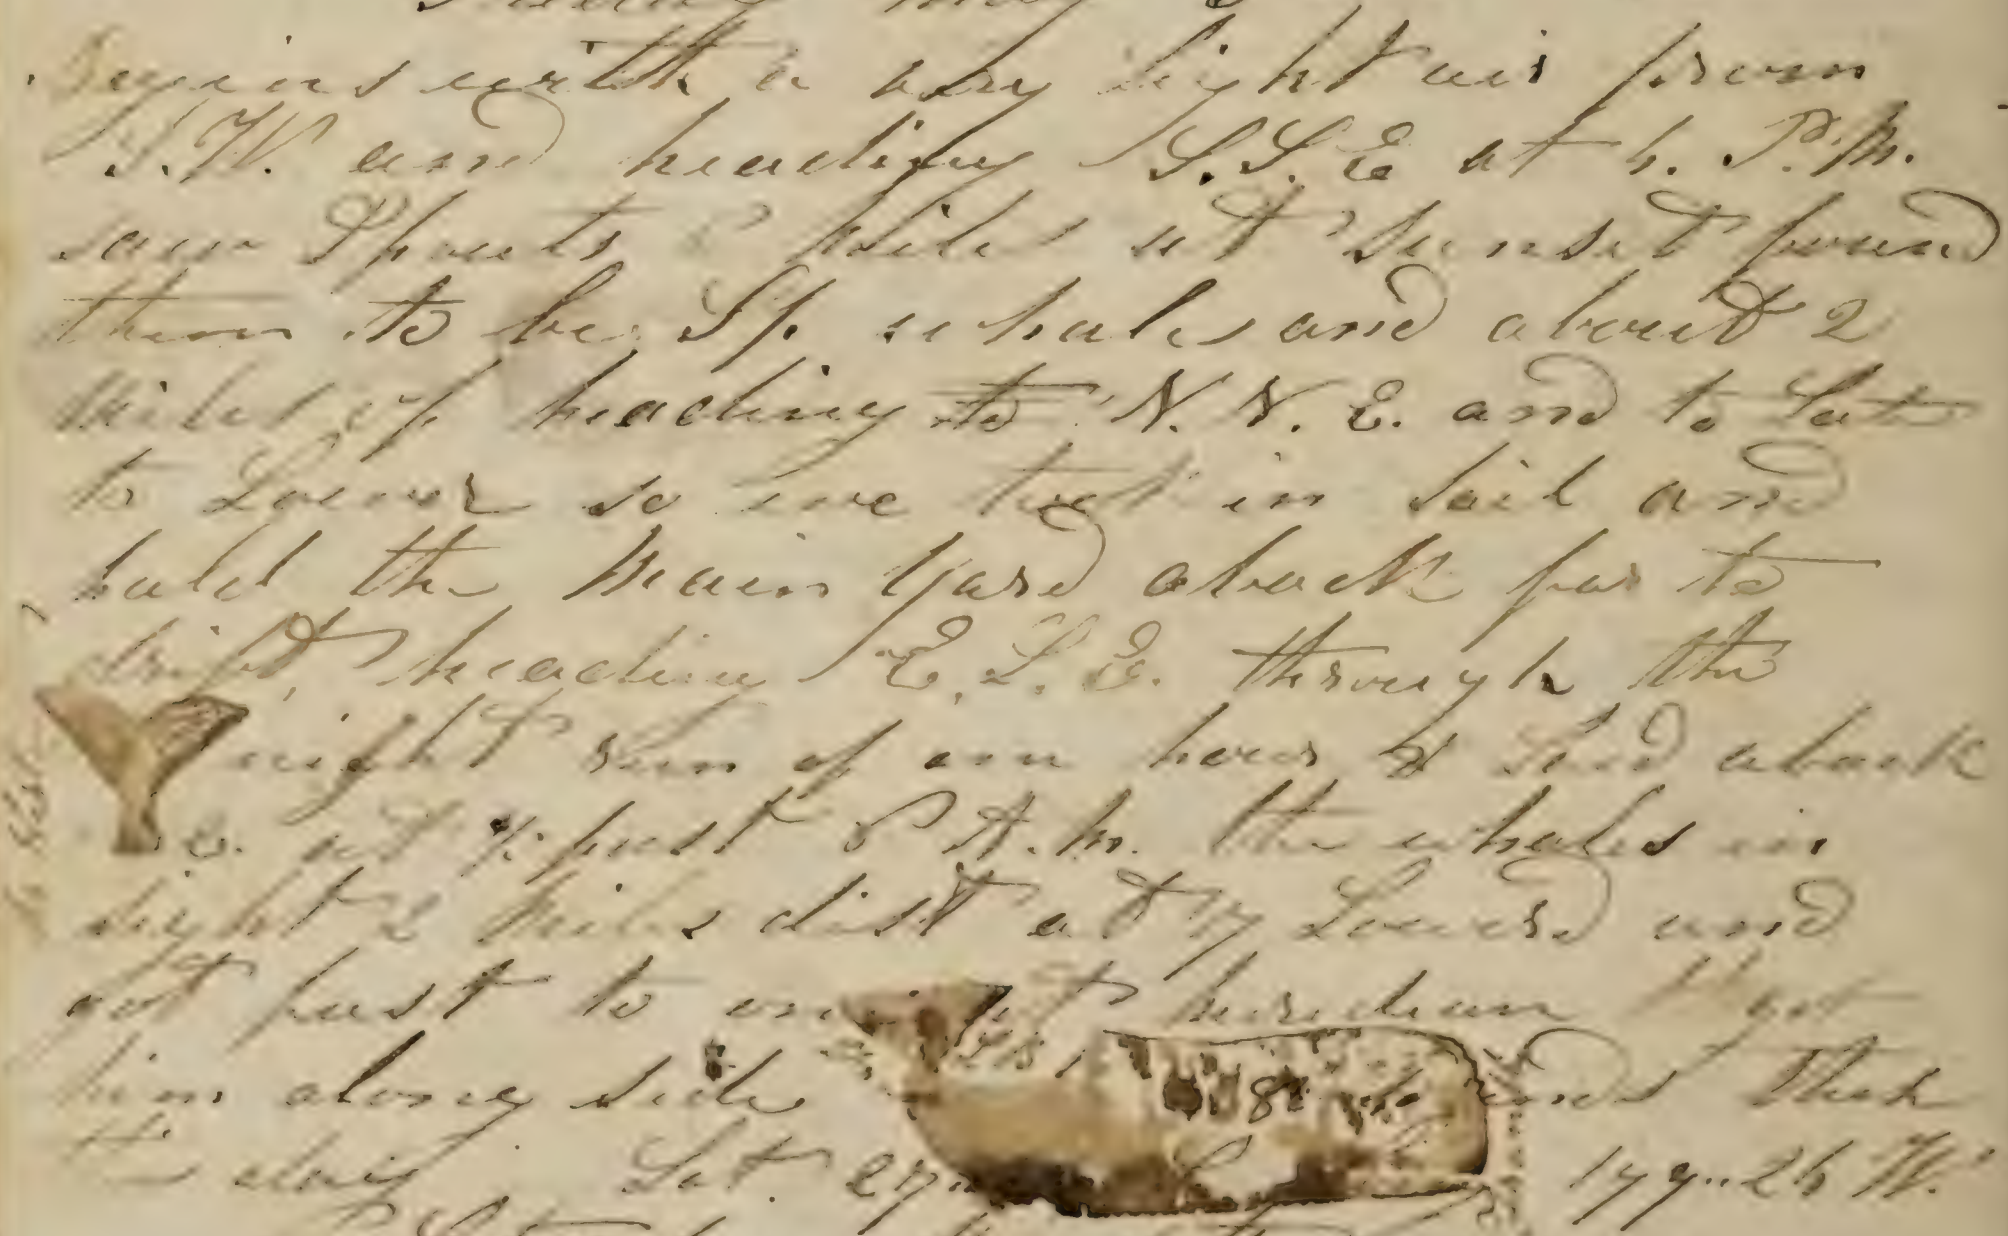 Begins with a very light air from
S.W. and heading S.S.E at 4. P.M.
saw Spouts 8 Miles at Sunset found
them to be Sp. whales and about 2
Miles of heading to N.N.E. and to Late
to Lower so we took in Sail and
hald the Main Yard aback for to
drift, heading E.S.E. through the
night run of an hour & Laid aback
at ½ past 5 A.M. the whales in
sight 2 Miles dist at 7 Lowerd and
got fast to one at Meridian got
him along side ends
day Lat. 27 179..24 W.